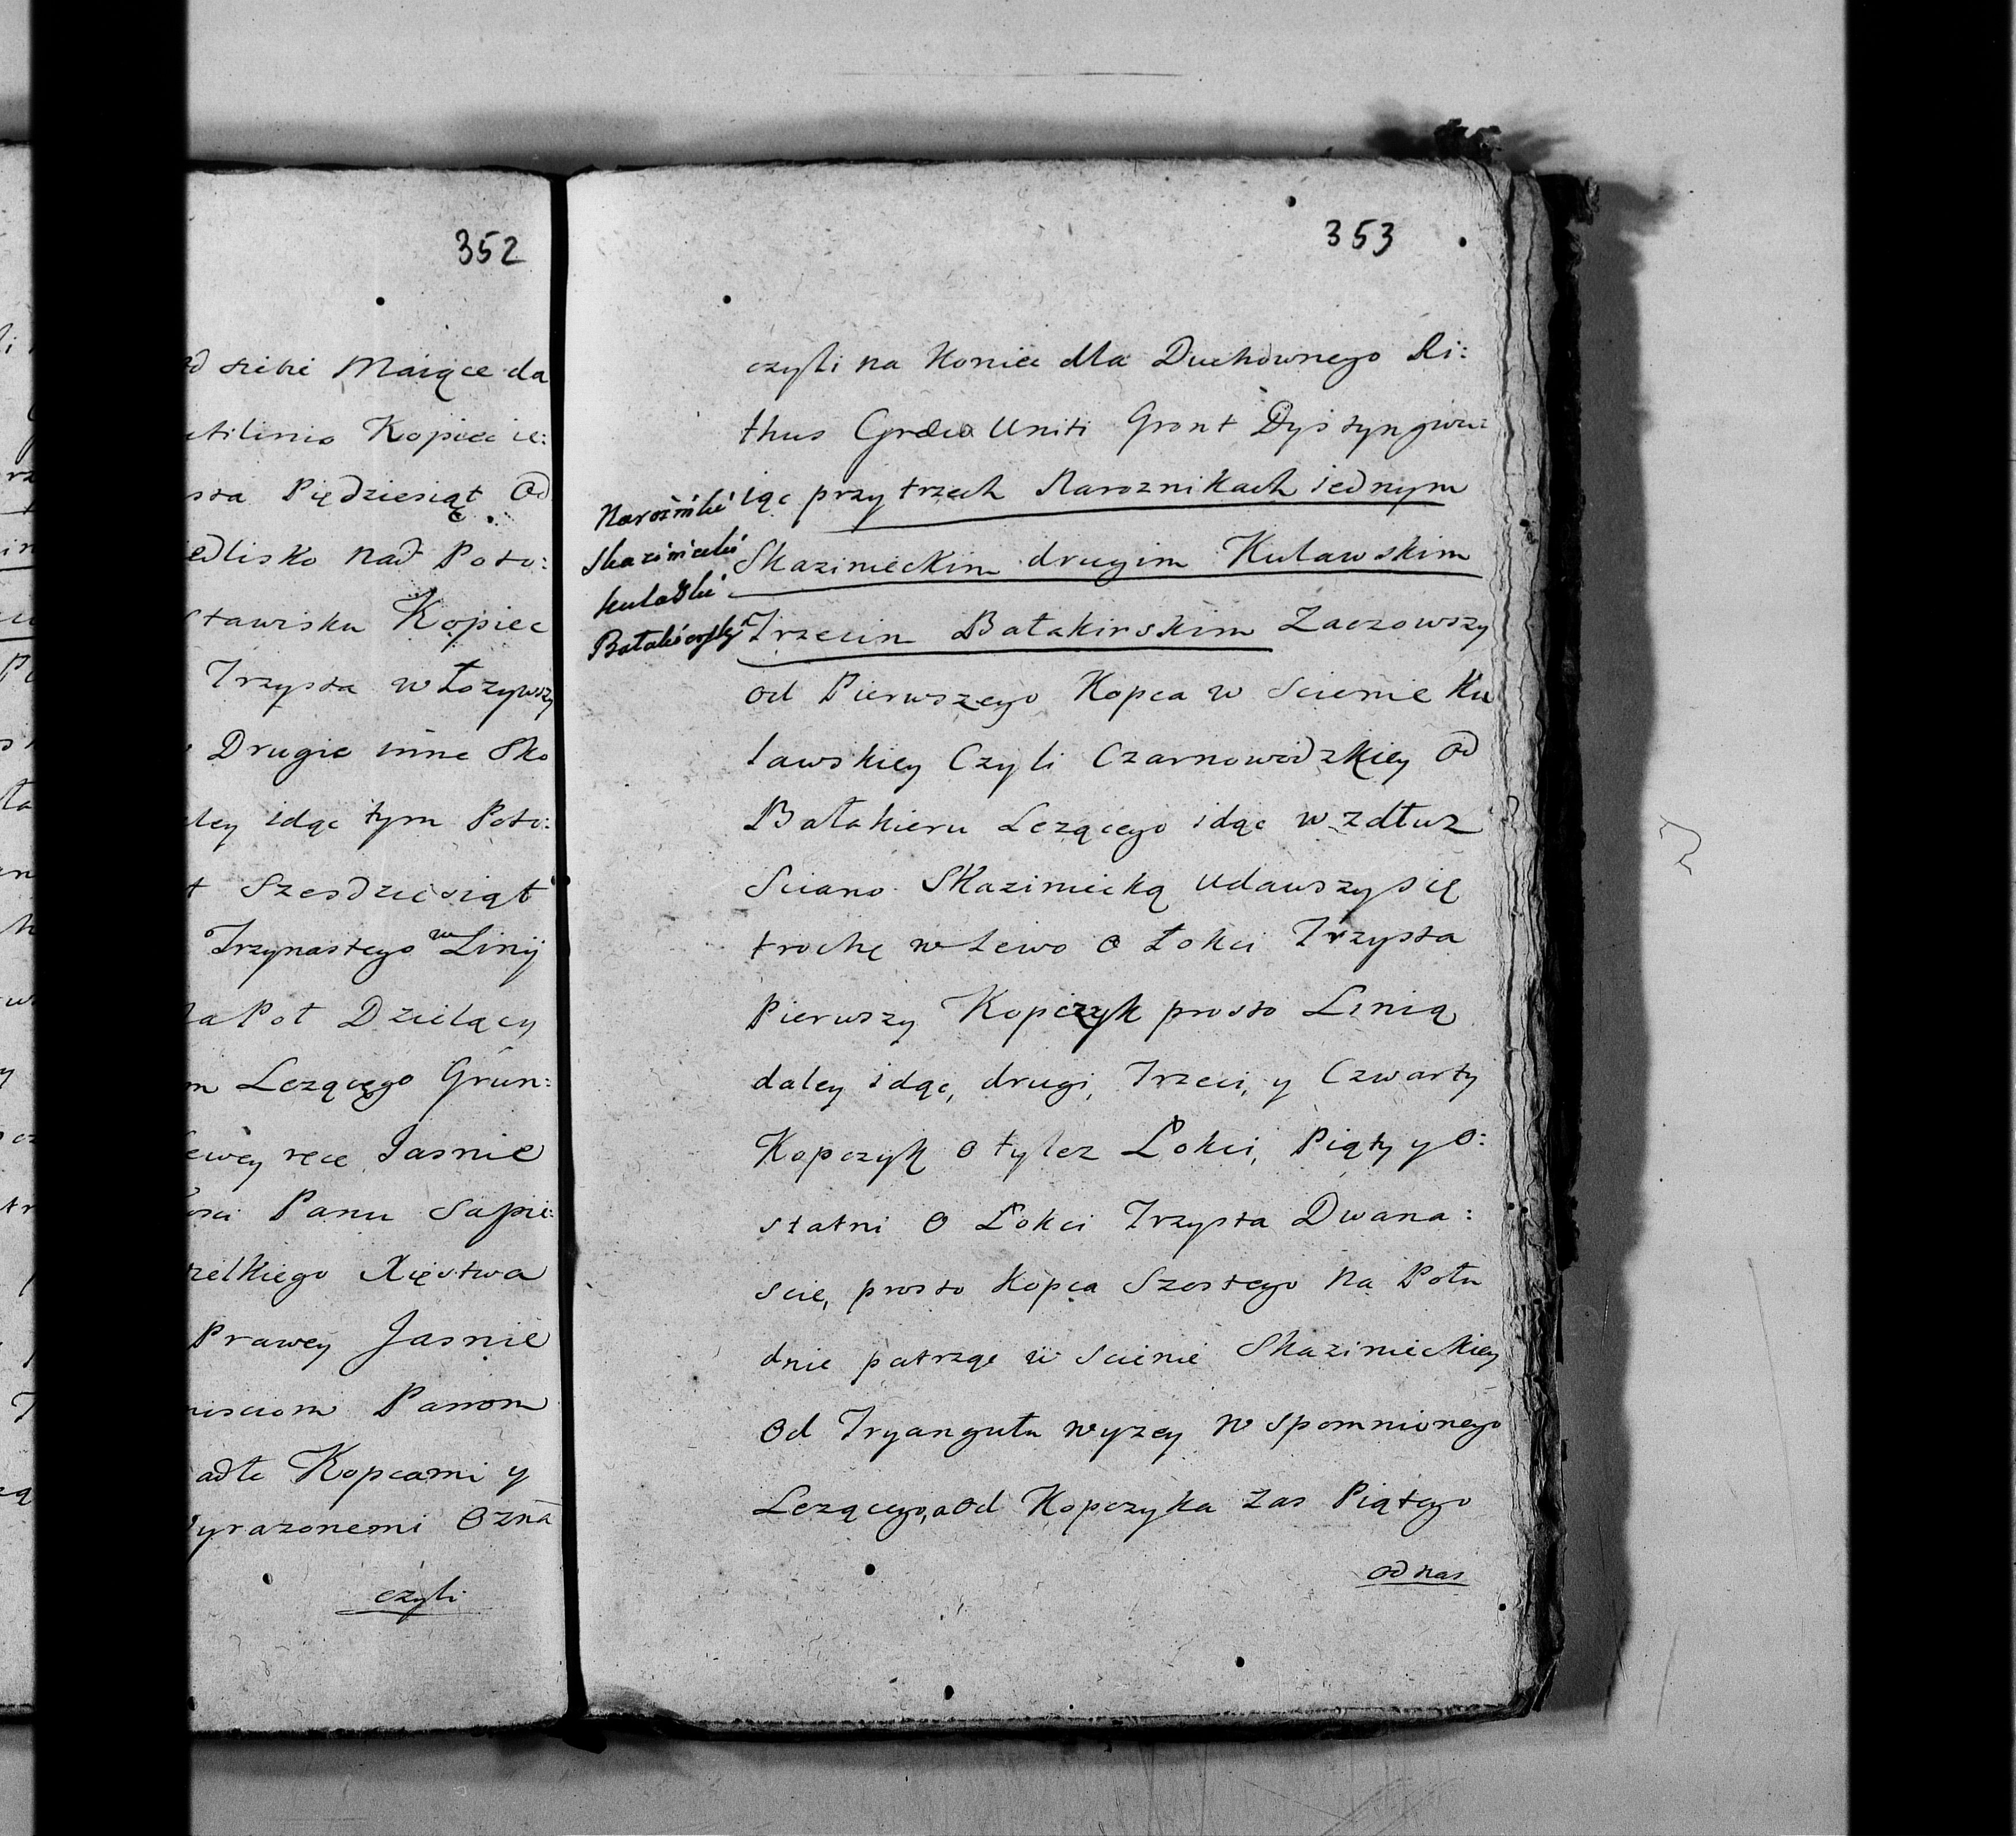 352
siebie Maiące da
Kopiec ie:
Piędziesiąt. Od
nad Poto:
Kopiec
Trzysta włozywszy
Drugie inne Sko
idąc tym Poto:
Szesdziesiąt
Trzynastego w Linij
Dzielący
Lezącego Grun:
ręce Jasnie
Panu Sapie:
Xięstwa
Prawey Jasnie
Panom
Kopcami y
Ozna
czyli
353
czyli na Koniec dla Duchownego Ri:
thus Græca Uniti Gront Dystyngwu:
iąc przy trzech Naroznikach iednym
Skazinieckim drugim Kulawskim
Trzecim Batakirskim Zaczowszy
od Pierwszego Kopca w Scienie Ku
lawskiey Czyli Czarnowodzkiey od
Batakieru Lezącego idąc wzdłuz
Sciano Skaziniecką udawszy się
trochę w Lewo o Łokci Trzysta
Pierwszy Kopczyk prosto Linią
daley idąc, drugi, Trzeci, y Czwarty
Kopczyk o tylez Łokci, Piąty y O:
statni o Łokci Trzysta Dwana:
scie, prosto Kopca Szostego na Połu
dnie patrząc w Scienie Skazinieckiey
Od Tryangułu wyzey wspomnionego
Lezącego, a od Kopczyka Zas Piątego
od nas
Narożniki
Skaziniecki
Kulawski